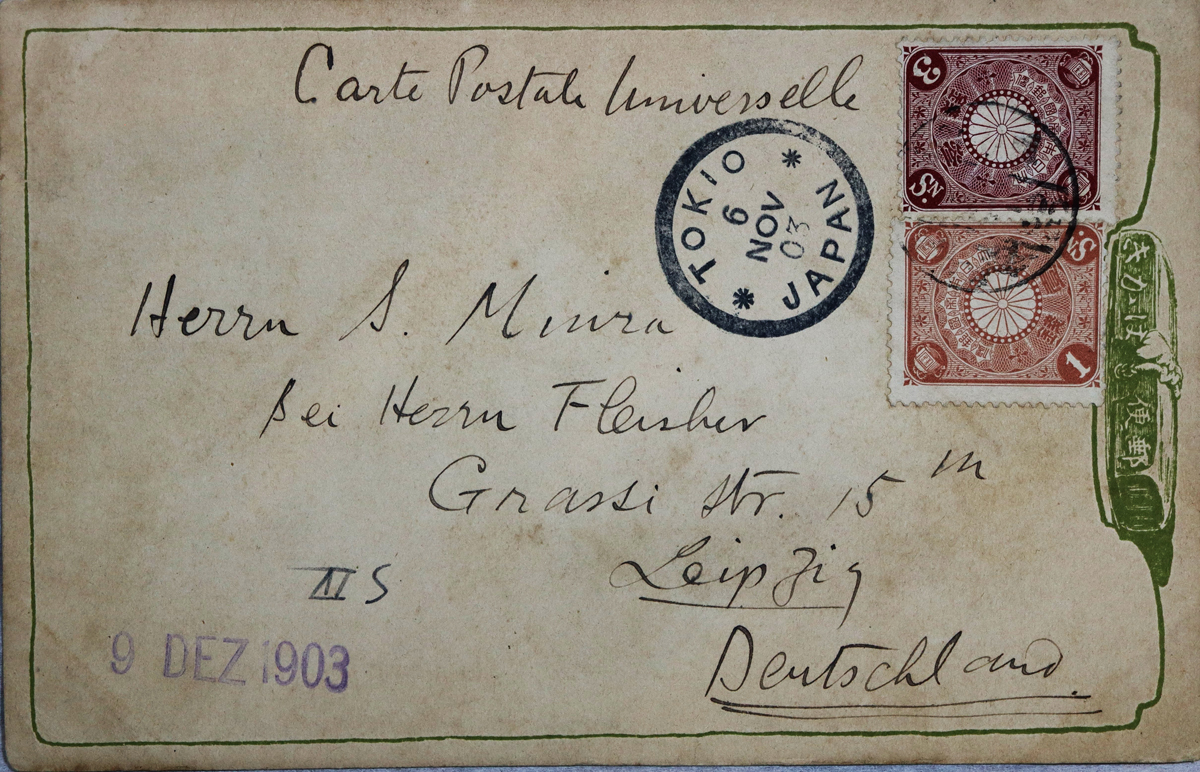 Carte Postale Universelle
TOKIO
6
NOV
03
JAPAN
3 Sⁿ.
1 Sⁿ.
きかは便郵
Herrn S. Miura
bei Herrn Fleisher
Grassi Str. 15 III
Leipzig
Deutschland.
VI S
9 DEZ 1903